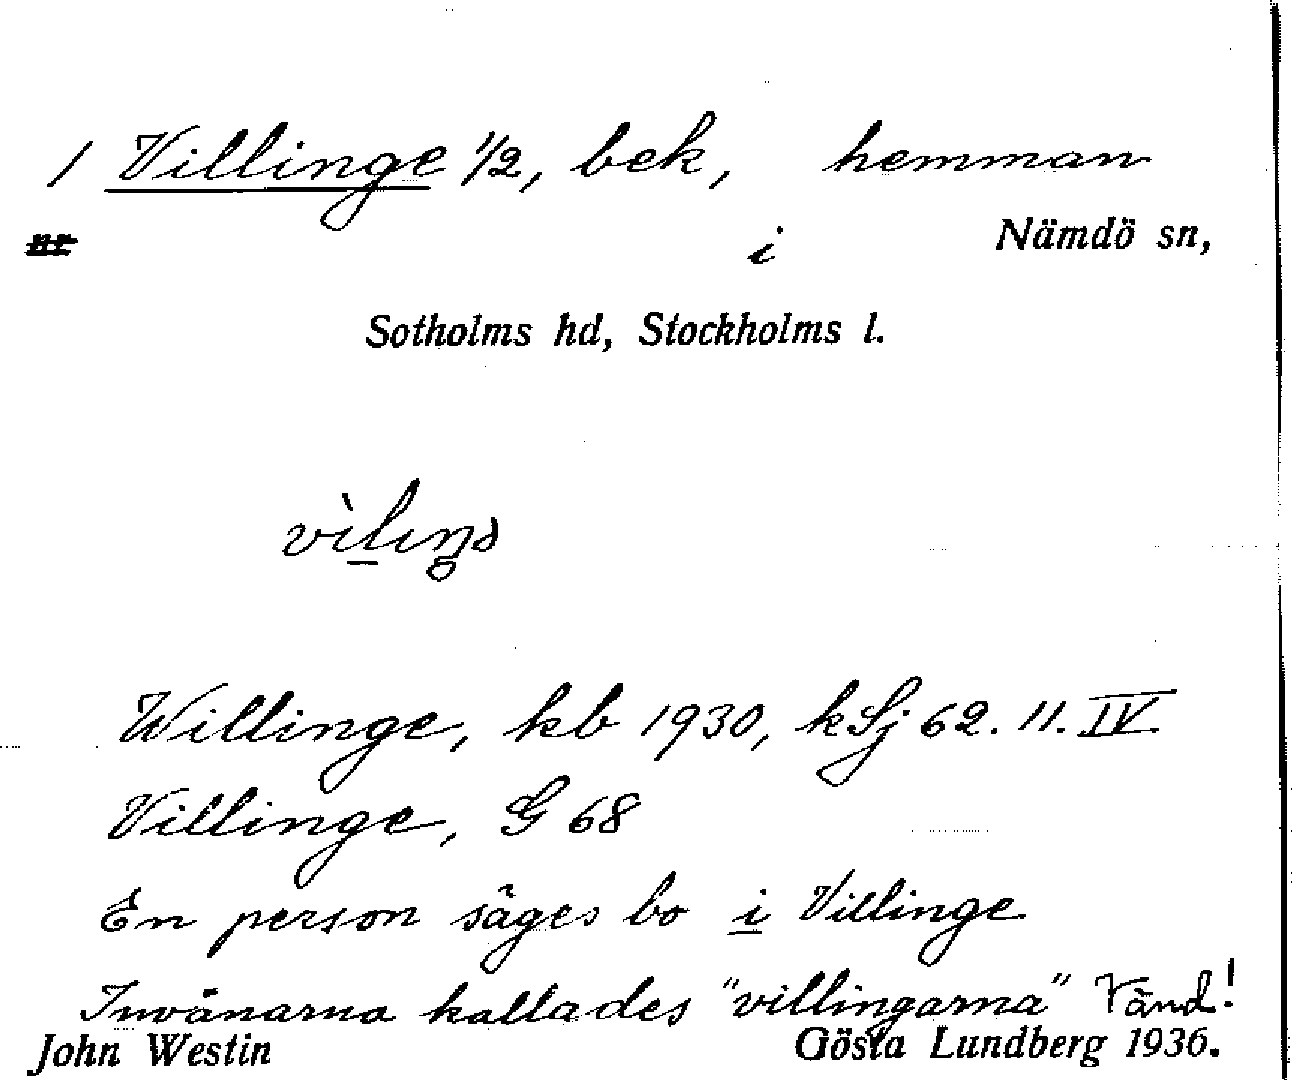 / Villinge 1/2, bek, hemman
i Nämdö sn,
Sotholms hd, Stockholms l.
Willinge, kb 1930, kSj 62. 11. IV
Villinge, G 68
En person säges bo i Villinge
Invånarna kallades "villingarna" Vänd!
John Westin Gösta Lundberg 1936.